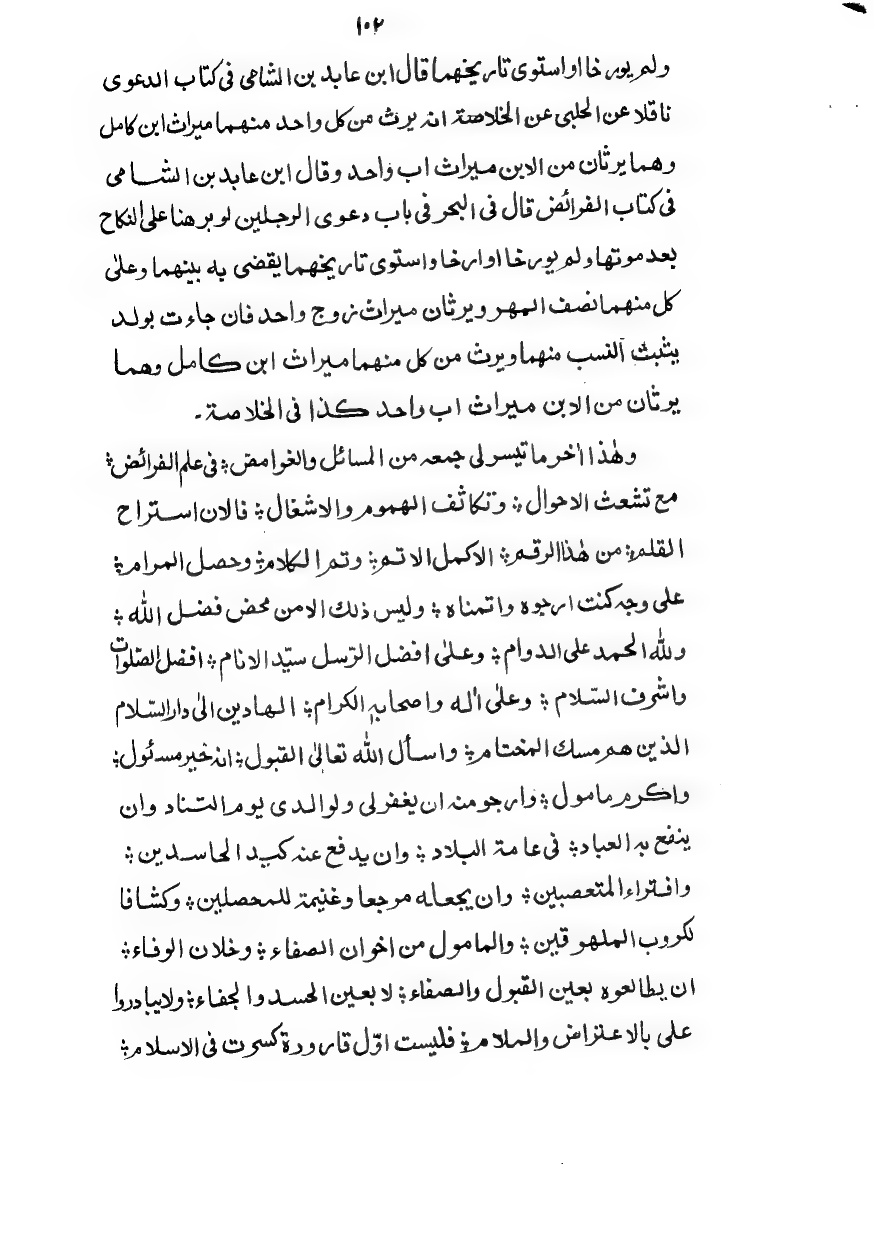 ١٠٢
ولم يورخا او استوى تاريخهما قال ابن عابدين الشامى فى كتاب الدعوى
ناقلا عن الحلبى عن الخلاصة انه يرث من كل واحد منهما ميراث ابن كامل
وهما يرثان من الابن ميراث اب واحد وقال ابن عابدين الشامى
فى كتاب الفرائض قال فى البحر فى باب دعوى الرجلين لو برهنا على النكاح
بعد موتها ولم يورخا او ارخا واستوى تاريخهما يقضى به بينهما وعلى
كل منهما نصف المهر ويرثان ميراث زوج واحد فان جاءت بولد
يثبت النسب منهما ويرث من كل منهما ميراث ابن كامل وهما
يرثان من الابن ميراث اب واحد كذا فى الخلاصة۔
وهٰذا اٰخر ما تيسر لى جمعه من المسائل والغوامض؛ فى علم الفرائض؛
مع تشعث الاحوال؛ وتكاثف الهموم والاشغال؛ فالان استراح
القلم؛ من هٰذا الرقم؛ الاكمل الاتم؛ وتم الكلام؛ وحصل المرام؛
على وجه كنت ارجوه واتمناه؛ وليس ذلك الا من محض فضل الله؛
ولله الحمد على الدوام؛ وعلىٰ افضل الرّسل سيّد الانام؛ افضل الصّلوات
واشرف السّلام؛ وعلىٰ اٰله واصحابه الكرام؛ الهادين الىٰ دار السّلام
الذين هم مسك الختام؛ واسأل الله تعالىٰ القبول؛ انه خير مسئول؛
واكرم مامول؛ وارجو منه ان يغفر لى ولوالدى يوم التناد وان
ينفع به العباد؛ فى عامة البلاد؛ وان يدفع عنه كيد الحاسدين؛
وافتراء المتعصبين؛ وان يجعله مرجعا وغنيمة للمحصلين؛ وكشافا
لكروب الملهوقين؛ والمامول من اخوان الصفاء؛ وخلان الوفاء؛
ان يطالعوه بعين القبول والصفاء؛ لا بعين الحسد والجفاء؛ ولا يبادروا
على بالاعتراض والملام؛ فليست اوّل قارورة كسرت فى الاسلام؛